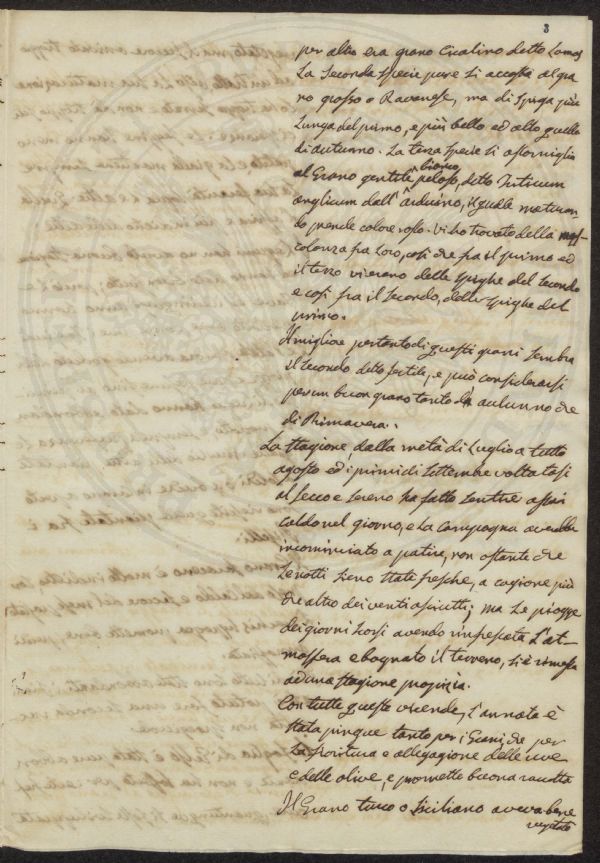 3
per altro era grano Cicalino detto Lomas
La Seconda Specie pure si accosta al gra
no grosso o Ravanese, ma di Spiga più
Lunga del primo, e più bello ed alto quello
di autunno. La terza Specie si assomiglia
bianco
al Grano gentile peloso, detto Triticum
anglicum dall'arduino, il quale maturan
do prende colore rosso. Vi ho trovato della mes-
colanza fra Loro, così che fra il primo ed
il terzo vi erano delle Spighe del Secondo
e così fra il Secondo, delle Spighe del
primo.
Il migliore pertanto di questi grani Sembra
il Secondo detto fertile, e può considerarsi
per un buon grano tanto di autunno che
di Primavera.
La Stagione, dalla metà di Luglio a tutto
agosto ed i primi di Settembre voltatasi
al Secco e Sereno ha fatto Sentire assai
caldo nel giorno, e La Campagna avrebbe
incominciato a patire, non ostante che
Le notti Sieno State fresche, a cagione più
che altro dei venti asciutti; ma Le piogge
dei giorni Scorsi avendo infrescata L'at-
mosfera e bagnato il terreno, si è romessa
ad una Stagione propizia.
Con tutte queste vicende, L'annata è
Stata pingue tanto per i Grani, che per
La fioritura e allegagione delle uve
e delle olive, e promette buona raccolta
Il Grano turco o Siciliano aveva bene
vegetato